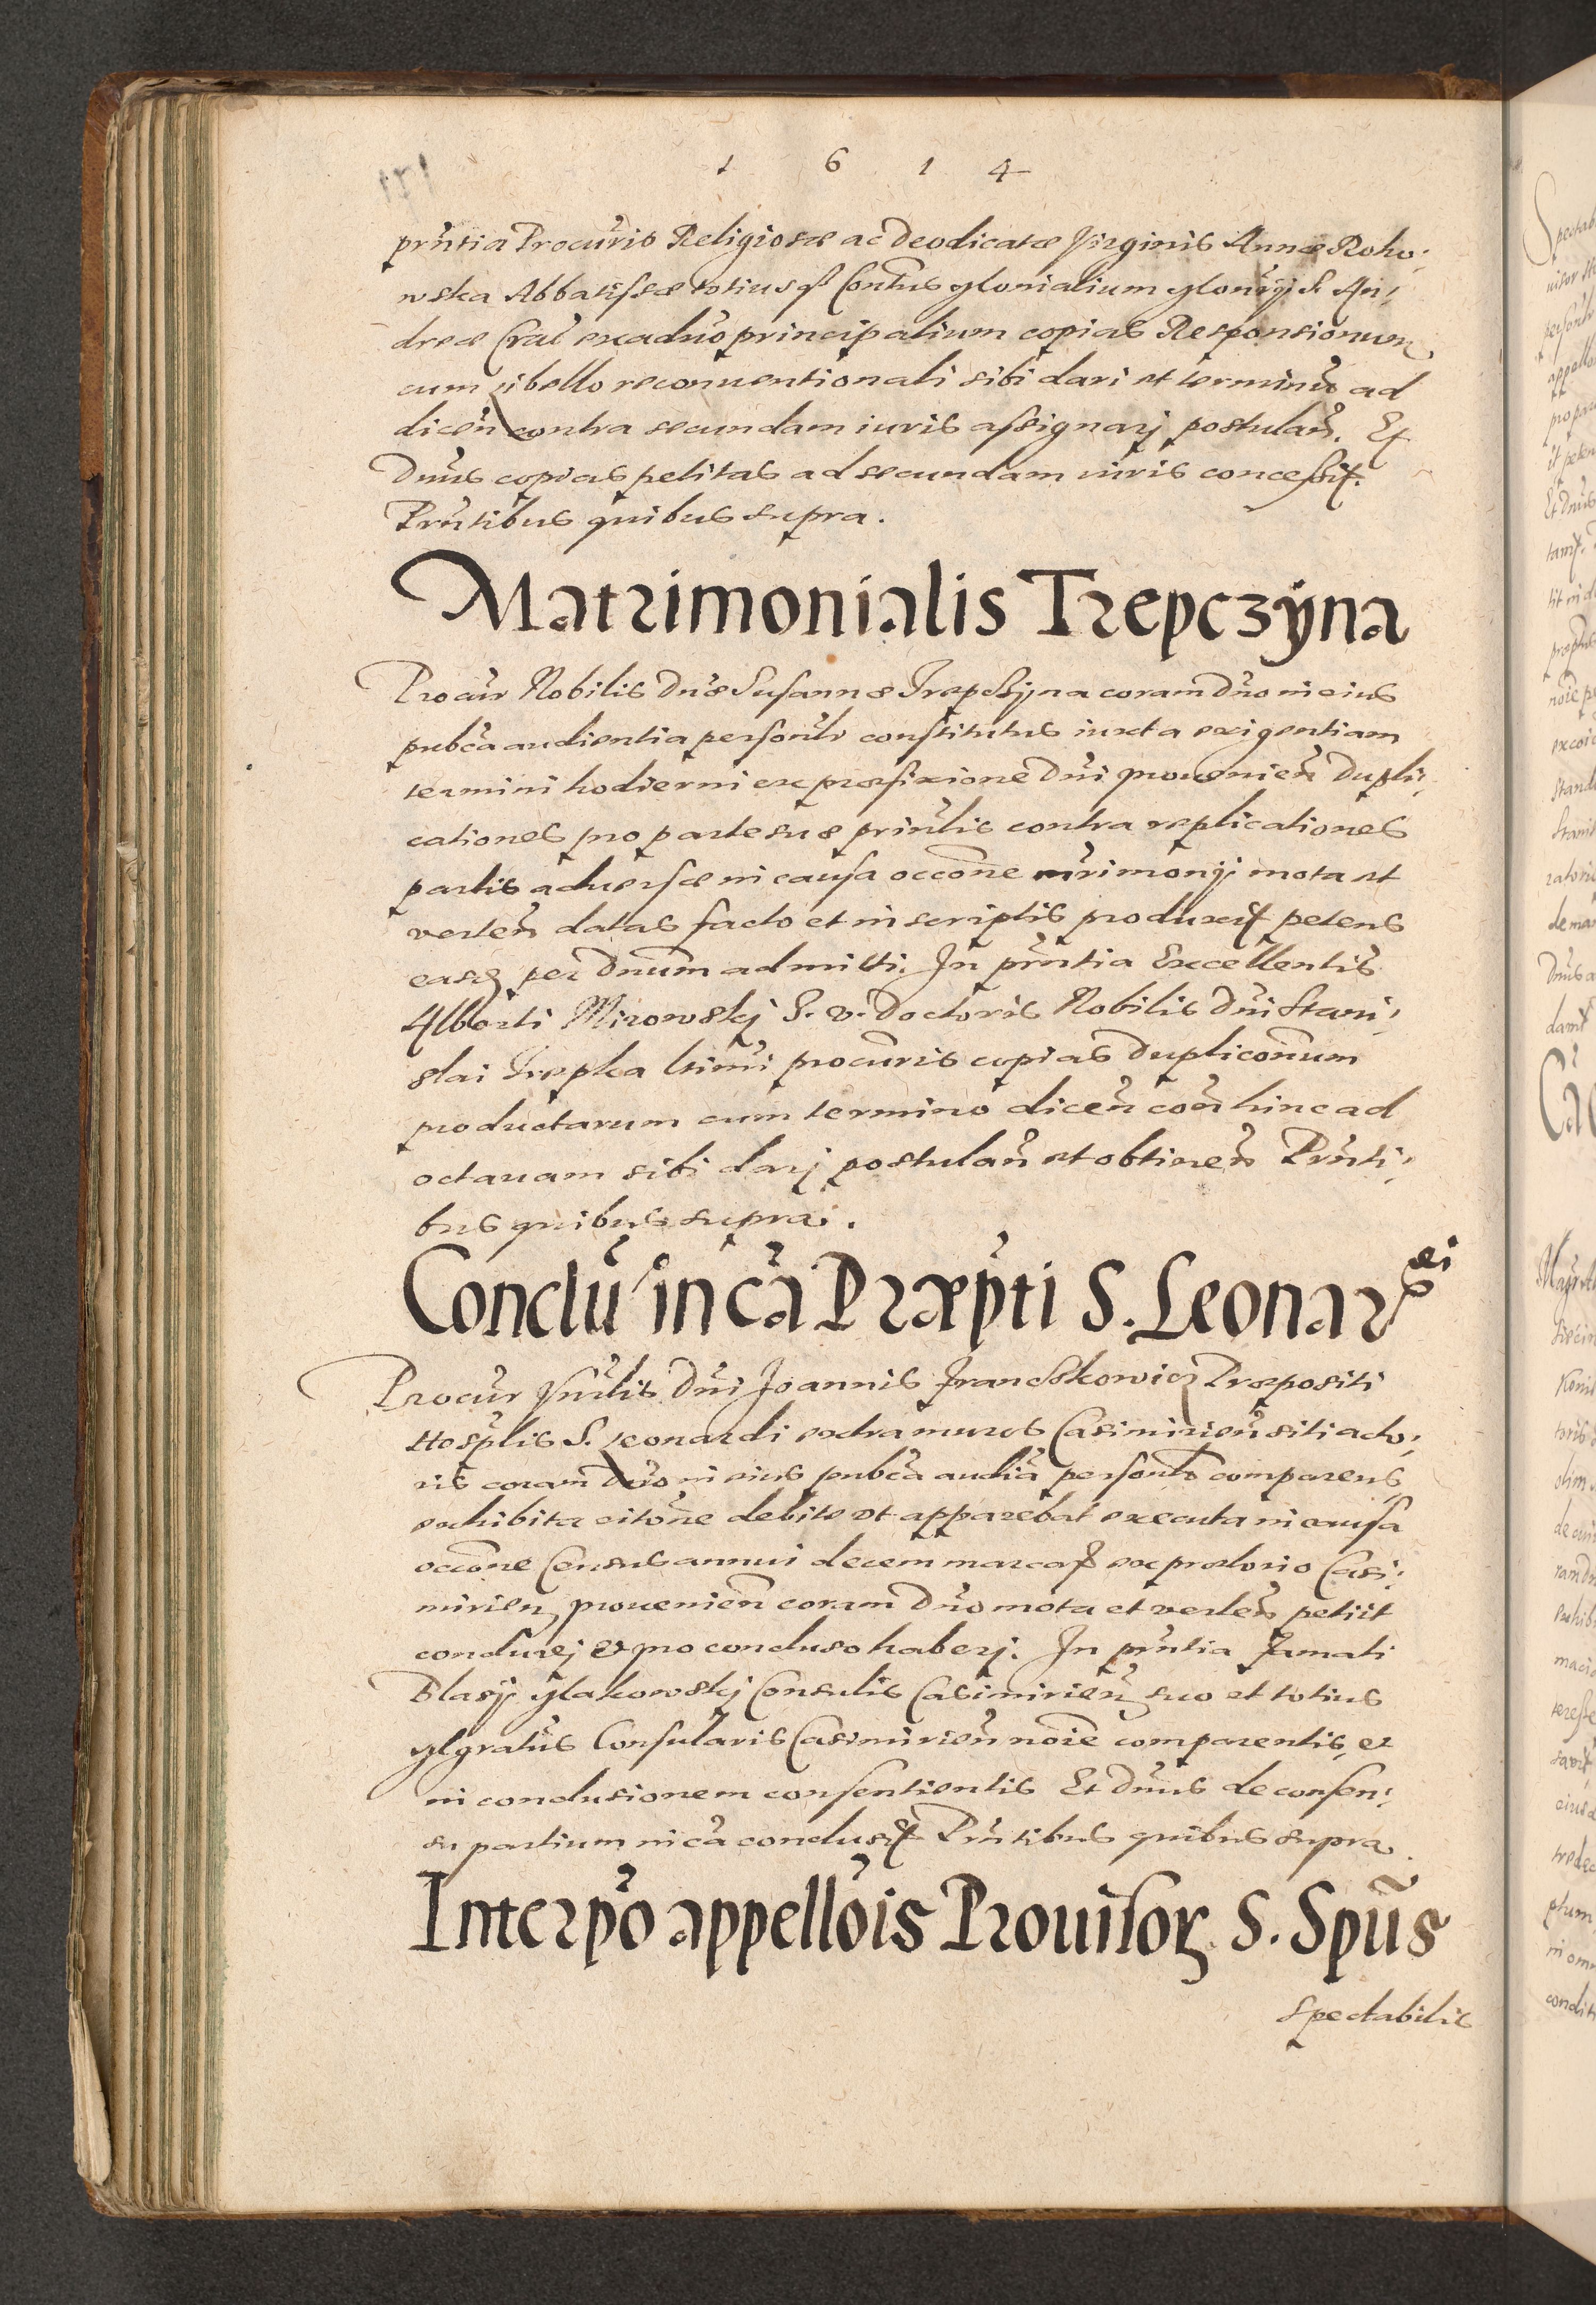 1 6 1 4
prn̄tia Procur̄is Religiosæ ac Deodicatæ Virginis Annæ Roko⸗
wska Abbatissæ totiusq̨ Conven̄tus Monialium Mon̄rij S. An⸗
dreæ Crac̄ ex adūo principalium copias Responsionum
cum libello reconventionali sibi dari et terminū ad
dicen̄ contra secundam iuris assignarj postulan̄. Et
Dn̄us copias petitas ad secundam iuris concessit.
Prn̄tibus quibus supra.
Matrimonialis Trepczÿna
Procur̄ Nobilis Dn̄æ Susannæ Trepczyna coram Dn̄o in eius
pub̄ca audientia person̄lr constitutus iuxta exigentiam
termini hodierni ex præfixione Dn̄i provenien̄ Dupli⸗
cationes pro parte suæ prin̄lis contra replicationes
partis adversæ in causa occōne mr̄imonij mota et
verten̄ datas facto et in scriptis produxit petens
easq̨ per Dn̄um admitti. In prn̄tia Excellentis
Alberti Mirowskj I. V. Doctoris Nobilis Dn̄i Stani⸗
slai Trepka ltimi procur̄is copias Duplicōnum
productarum cum termino dicen̄ con̄ hinc ad
octavam sibi darj postulan̄ et obtinen̄ Prn̄ti⸗
bus quibus supra.
Conclū in cā Præpti S. Leonardi
Procur̄ Vn̄lis Dn̄i Joannis Franckowicz Præpositi
Hosp̄lis S. Leonardi extra muros Casimirien̄ siti acto⸗
ris coram Dn̄o in eius pub̄ca audiā person̄lr comparens
exhibita citōne debite ut apparebat executa in causa
occōne Census annui decem marcar̨ ex prætorio Casi⸗
mirien̄ provenien̄ coram Dn̄o mota et verten̄ petiit
concludj et pro concluso haberj. In prn̄tia Famati
Blasij Makowskj Consulis Casimirien̄ suo et totius
Mgratūs Consularis Casimirien̄ noīe comparentis, et
in conclusionem consentientis Et Dn̄us de consen⸗
su partium in cā conclusit Prn̄tibus quibus supra.
Interpō appellōis Prouisor̨ S. Spūs
Spectabilis